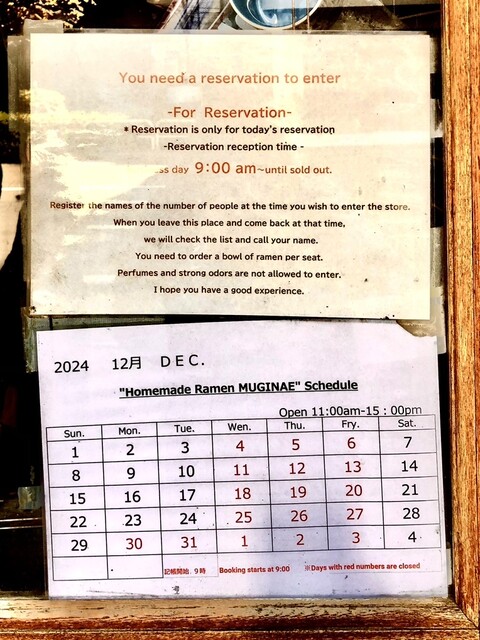 You need a reservation to enter
-For Reservation-
* Reservation is only for today's reservation
-Reservation reception time -
ss day 9:00 am~until sold out.
Register the names of the number of people at the time you wish to enter the store.
When you leave this place and come back at that time,
we will check the list and call your name.
You need to order a bowl of ramen per seat.
Perfumes and strong odors are not allowed to enter.
I hope you have a good experience.
2024 12月 DEC.
"Homemade Ramen MUGINAE" Schedule
Open 11:00am-15:00pm
Sun. Mon. Tue. Wen. Thu. Fry. Sat.
1 2 3 4 5 6 7
8 9 10 11 12 13 14
15 16 17 18 19 20 21
22 23 24 25 26 27 28
29 30 31 1 2 3 4
記帳開始、9時 Booking starts at 9:00 ※Days with red numbers are closed